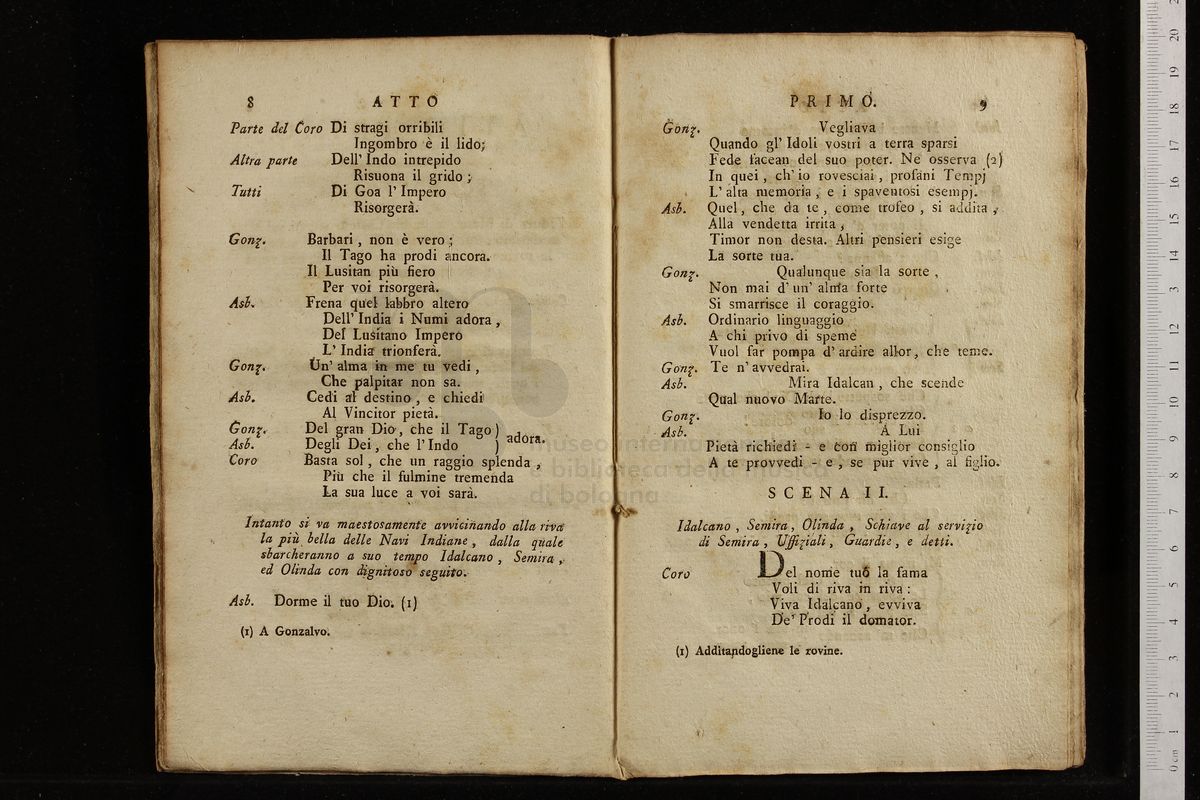 8 ATTO
Parte del Coro Di stragi orribili
Ingombro è il lido;
Altra parte Dell' Indo intrepido
Risuona il grido;
Tutti Di Goa l' Impero
Risorgerà.
Gonz. Barbari, non è vero;
Il Tago ha prodi ancora.
Il Lusitan più fiero
Per voi risorgerà.
Asb. Frena quel labbro altero
Dell' India i Numi adora,
Del Lusitano Impero
L' India trionferà.
Gonz. Un' alma in me tu vedi,
Che palpitar non sa.
Asb. Cedi al destino, e chiedi
Al Vincitor pietà.
Gonz. Del gran Dio, che il Tago )
Asb. Degli Dei, che l' Indo ) adora.
Coro Basta sol, che un raggio splenda,
Più che il fulmine tremenda
La sua luce a voi sarà.
Intanto si va maestosamente avvicinando alla riva
la più bella delle Navi Indiane, dalla quale
sbarcheranno a suo tempo Idalcano, Semira,
ed Olinda con dignitoso seguito.
Asb. Dorme il tuo Dio. (1)
(1) A Gonzalvo.
PRIMO. 9
Gonz. Vegliava
Quando gl' Idoli vostri a terra sparsi
Fede facean del suo poter. Ne osserva (2)
In quei, ch' io rovesciai, profani Tempj
L' alta memoria, e i spaventosi esempj.
Asb. Quel, che da te, come trofeo, si addita,
Alla vendetta irrita,
Timor non desta. Altri pensieri esige
La sorte tua.
Gonz. Qualunque sia la sorte,
Non mai d' un' alma forte
Si smarrisce il coraggio.
Asb. Ordinario linguaggio
A chi privo di speme
Vuol far pompa d' ardire allor, che teme.
Gonz. Te n' avvedrai.
Asb. Mira Idalcan, che scende
Qual nuovo Marte.
Gonz. Io lo disprezzo.
Asb. A Lui
Pietà richiedi - e con miglior consiglio
A te provvedi - e, se pur vive, al figlio.
SCENA II.
Idalcano, Semira, Olinda, Schiave al servizio
di Semira, Uffiziali, Guardie, e detti.
Coro Del nome tuo la fama
Voli di riva in riva:
Viva Idalcano, evviva
De' Prodi il domator.
(1) Additandogliene le rovine.
museo internazionale
e biblioteca della musica
di bologna